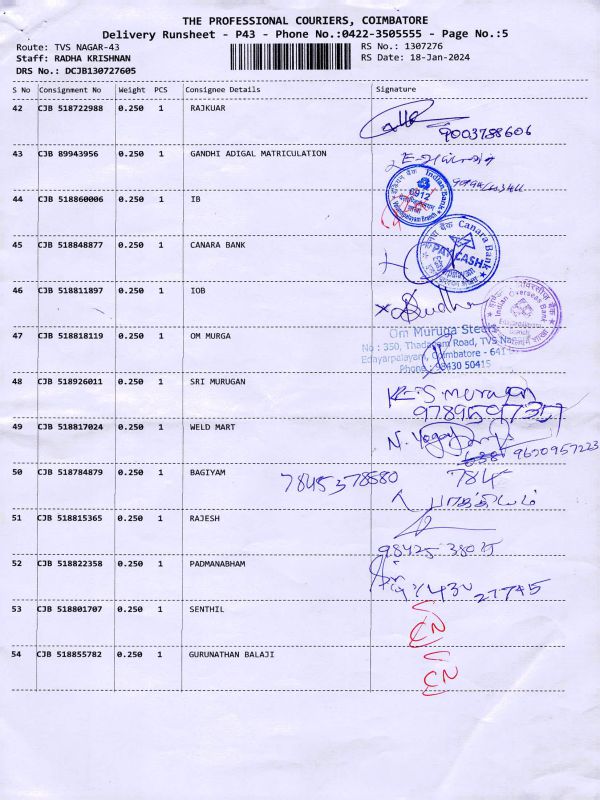 THE PROFESSIONAL COURIERS, COIMBATORE
Delivery Runsheet - P43 - Phone No.:0422-3505555 - Page No.:5
Route: TVS NAGAR-43 RS No.: 1307276
Staff: RADHA KRISHNAN RS Date: 18-Jan-2024
DRS No.: DCJB130727605
S No Consignment No Weight PCS Consignee Details Signature
42 CJB 518722988 0.250 1 RAJKUAR
9003788606
43 CJB 89943956 0.250 1 GANDHI ADIGAL MATRICULATION
44 CJB 518860006 0.250 1 IB
Indian Bank
0912
45 CJB 518848877 0.250 1 CANARA BANK
Canara Bank
PAY CASH
46 CJB 518811897 0.250 1 IOB
Sudha
Indian Overseas Bank
47 CJB 518818119 0.250 1 OM MURGA
Om Muruga Steels
No : 350, Thadagam Road, TVS Nagar
Edayarpalayam, Coimbatore - 641
Phone : 98430 50415
48 CJB 518926011 0.250 1 SRI MURUGAN
9789597357
49 CJB 518817024 0.250 1 WELD MART
9600957223
50 CJB 518784879 0.250 1 BAGIYAM 7845378580 784
பாக்கியம்
51 CJB 518815365 0.250 1 RAJESH
52 CJB 518822358 0.250 1 PADMANABHAM
27745
53 CJB 518801707 0.250 1 SENTHIL
CN
54 CJB 518855782 0.250 1 GURUNATHAN BALAJI
CN